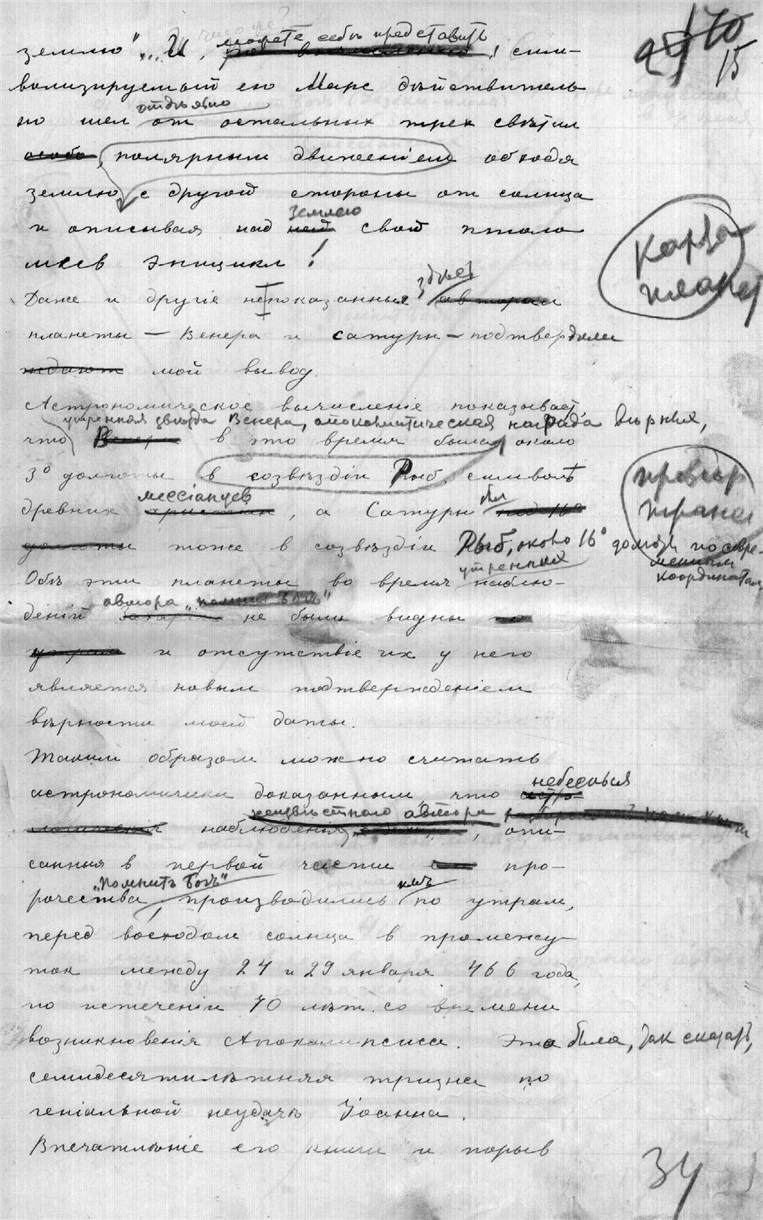 170
15
землю"... И, можете себѣ представить, ! сим-
волизируемый ею Марс дѣйствитель
но шел отдѣльно от остальных трех свѣтил
особо, полярным движеніем обходя
землю с другой стороны от солнца
и описывая над ней землею свой птоло
меев эпицикл!
Карта
планет
Даже и другіе непоказанные здѣсь автором
планеты — Венера и Сатурн — подтвердили
ждают мой вывод.
Астрономическое вычисление показывает,
утренняя звѣзда Венера, апокалиптическая награда вѣрныя,
что Венера в это время была около
3° долготы в созвѣздіи Рыб, символѣ
древних мессіанцев, а Сатурн
долготы тоже в созвѣздіи Рыб, около 16° долготы по совре-
менным
координатам
Обѣ эти планеты во время утренних наблю-
деній автора "помнит Бог" не были видны
и отсутствіе их у него
является новым подтвержденіем
вѣрности моей даты.
Таким образом можно считать
астрономически доказанным, что небесныя
наблюденія неизвѣстного автора, опи-
санныя в первой части про-
рочества "Помнит Бог", производились им по утрам,
перед восходом солнца в промежу-
ток между 24 и 29 января 466 года,
по истеченіи 70 лѣт со времени
возникновения Апокалипсиса. Это была, так сказать,
семидесятилѣтняя тризна по
геніальной неудачѣ Іоанна.
Впечатлѣніе его книги и порыв
34